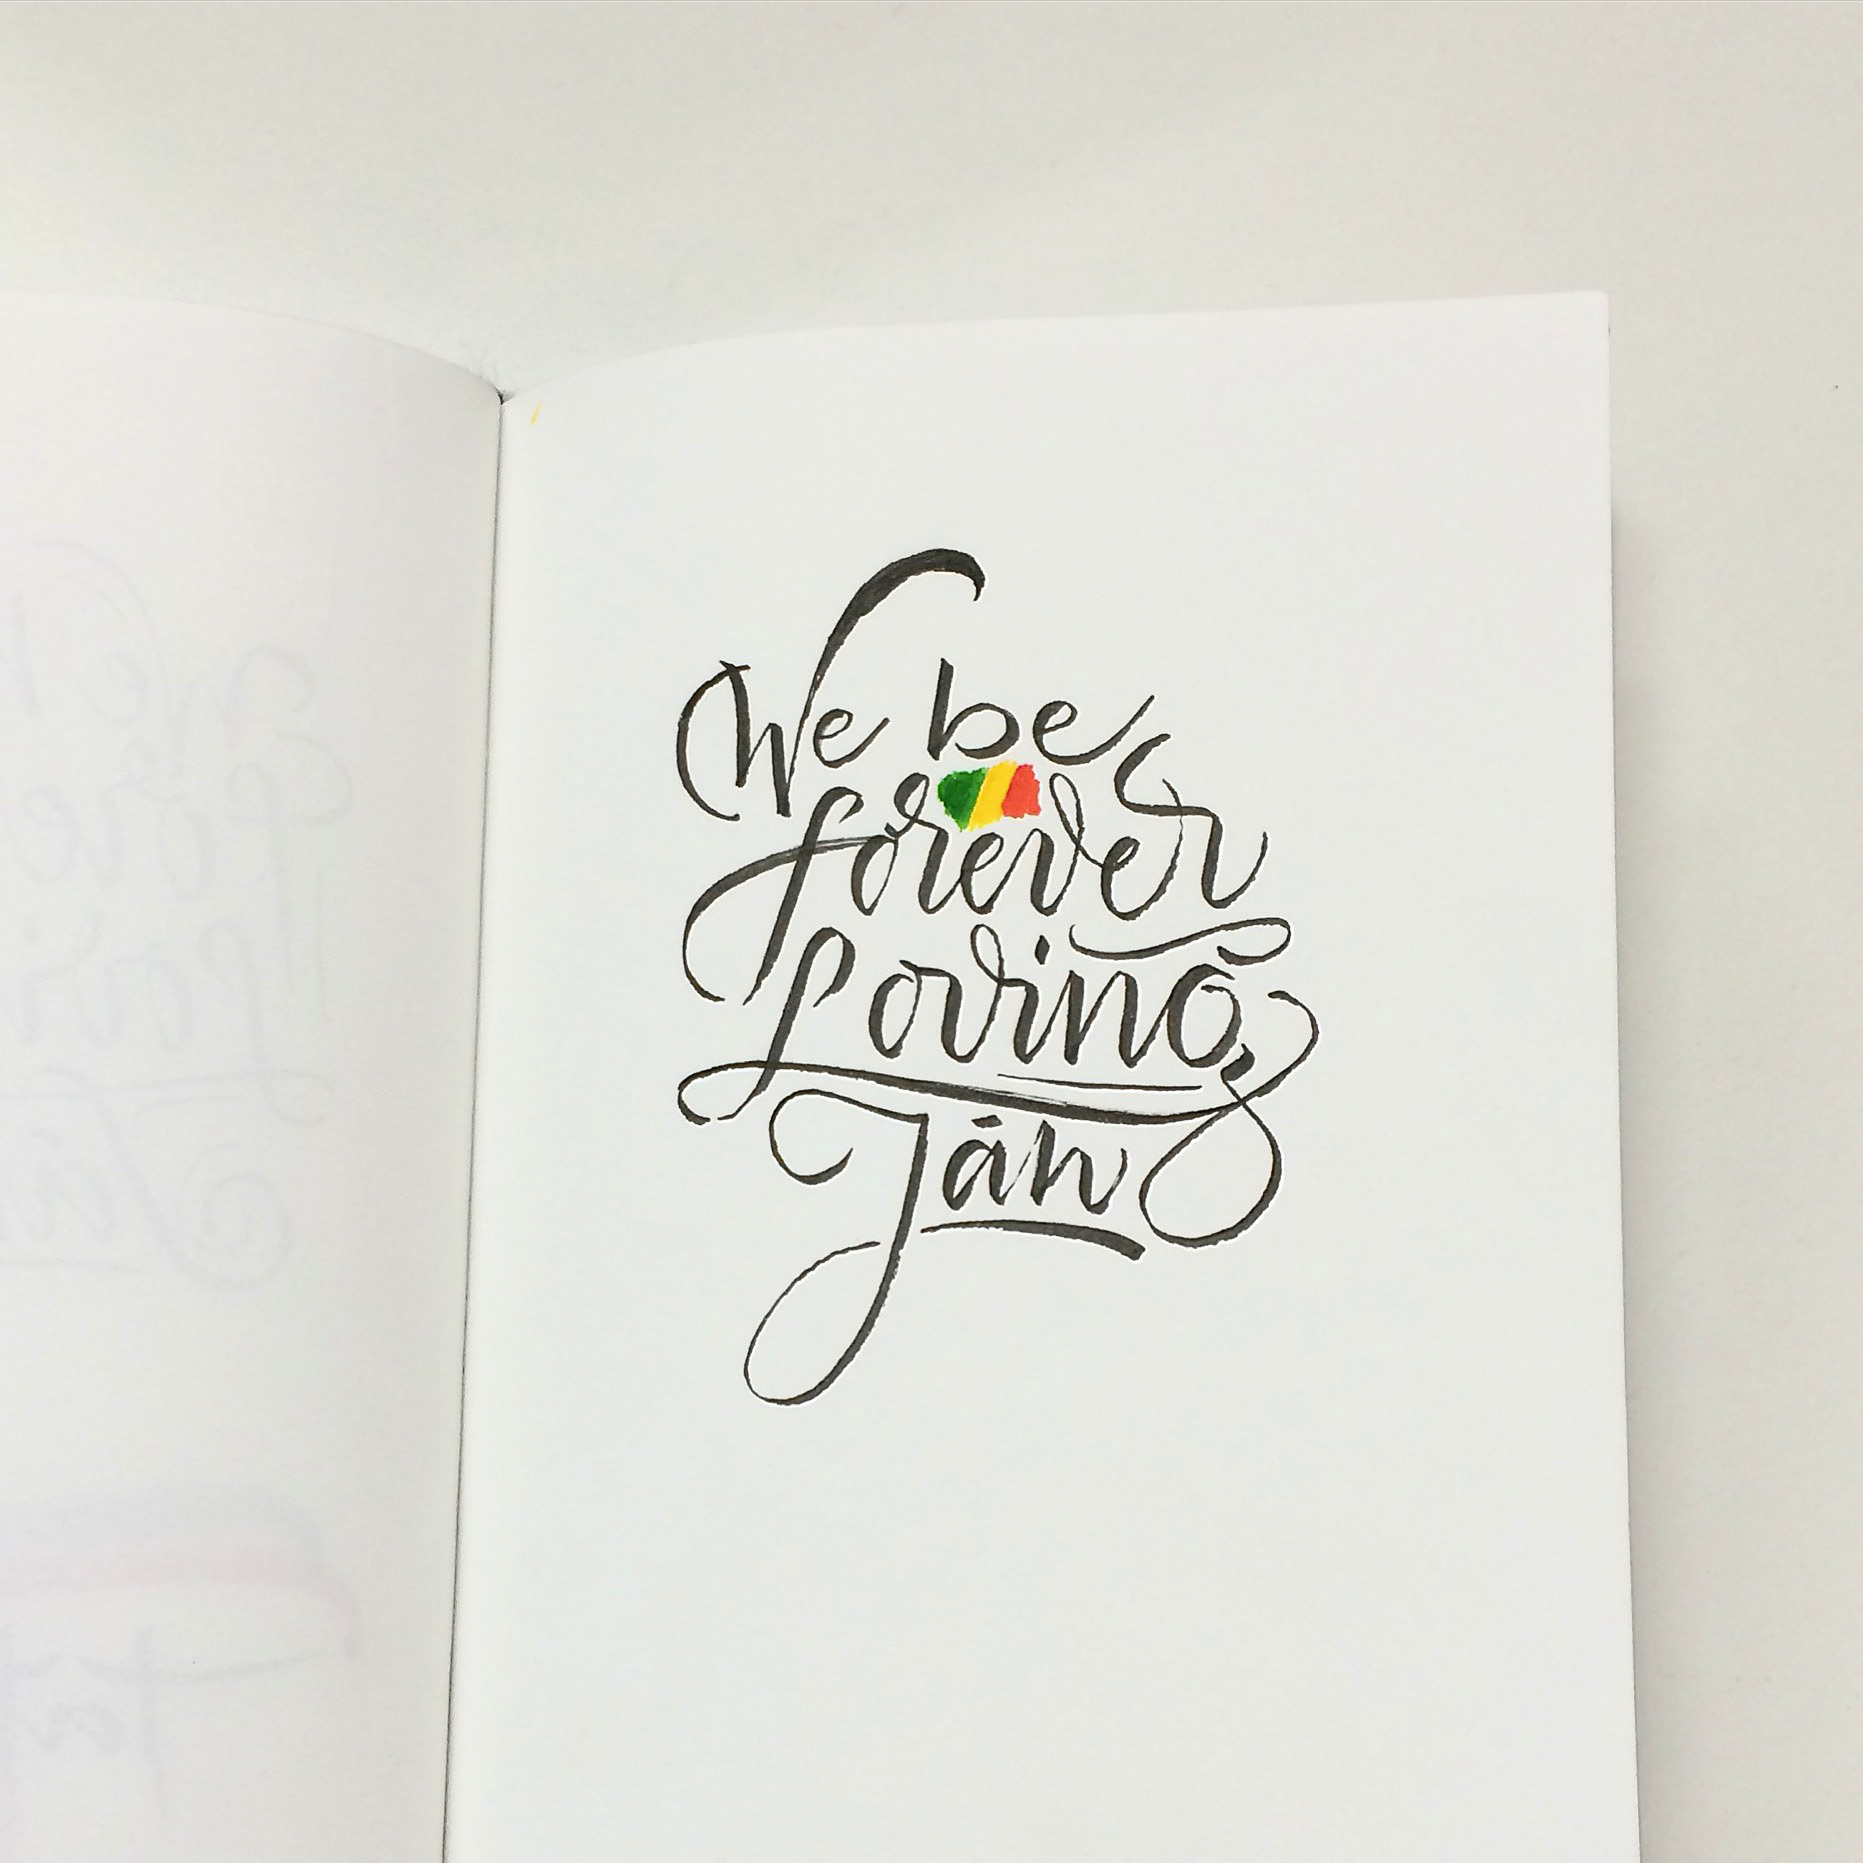 We be
forever
Loving
Jáh